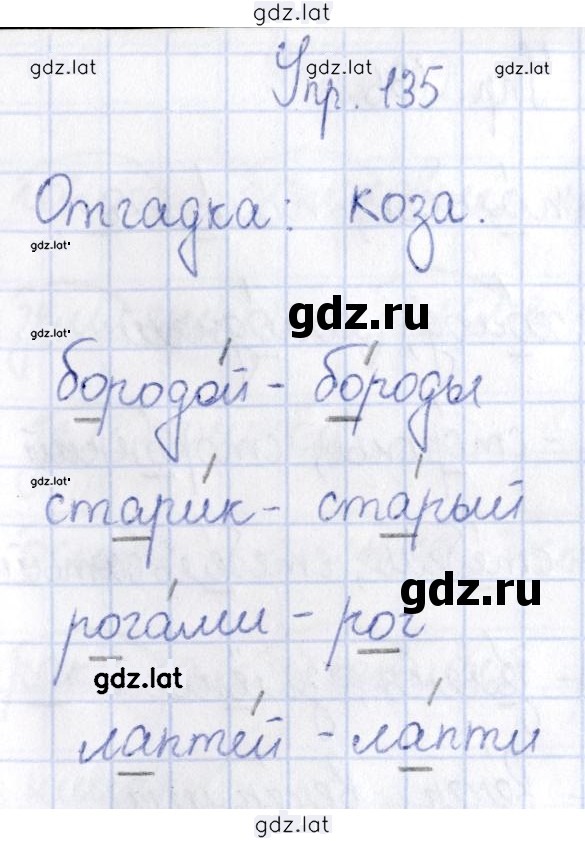 gdz.lat
gdz.lat gdz.lat gdz.lat
Упр. 135
Отгадка: коза.
gdz.lat
gdz.ru
gdz.lat
бородо́й - бо́роды
gdz.lat
стари́к - ста́рый
gdz.ru
рога́ми - рог
gdz.lat
лапте́й - ла́пти
gdz.lat